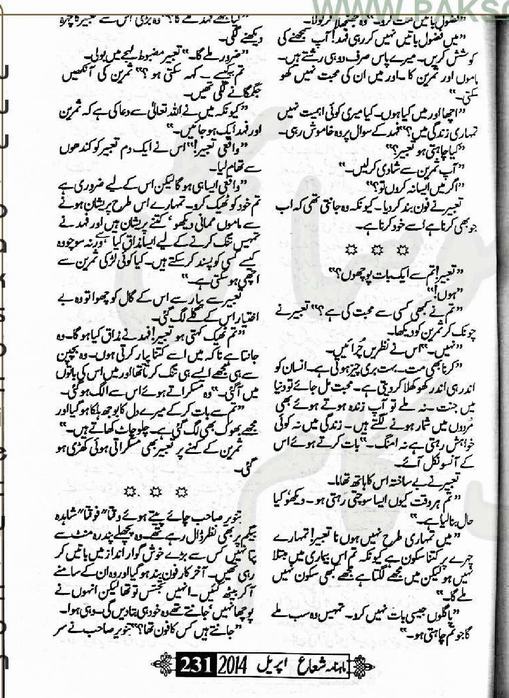 WWW.PAKSO
"فضول باتیں مت کرو۔" وہ جھنجلا کر بولا۔
"میں فضول باتیں نہیں کر رہی فہد! آپ سمجھنے کی
کوشش کریں۔ میرے پاس صرف دو ہی رشتے ہیں۔
ماموں اور ثمرین کا۔ اور میں ان کی محبت نہیں کھو
سکتی۔"
"اچھا اور میں کیا ہوں۔ کیا میری کوئی اہمیت نہیں
تمہاری زندگی میں؟" فہد کے سوال پر وہ خاموش رہی۔
"کیا چاہتی ہو تعبیر؟"
"آپ ثمرین سے شادی کرلیں۔"
"اگر میں ایسا نہ کروں تو؟"
تعبیر نے فون بند کر دیا۔ کیونکہ وہ جانتی تھی کہ اب
جو بھی کرنا ہے اسے خود کرنا ہے۔
☼ ☼ ☼
"تعبیر! تم سے ایک بات پوچھوں؟"
"ہوں!"
"تم نے کبھی کسی سے محبت کی ہے؟" تعبیر نے
چونک کر ثمرین کو دیکھا۔
"نہیں۔" اس نے نظریں چرائیں۔
"کرنا بھی مت۔ بہت بری چیز ہوتی ہے۔ انسان کو
اندر ہی اندر کھوکھلا کر دیتی ہے۔ محبت مل جائے تو دنیا
میں جنت۔ نہ ملے تو آپ زندہ ہوتے ہوئے بھی
مردوں میں شمار ہونے لگتے ہیں۔ زندگی میں نہ کوئی
خواہش رہتی ہے نہ امنگ۔" بات کرتے ہوئے اس
کے آنسو نکل آئے۔
تعبیر نے بے ساختہ اس کا ہاتھ تھاما۔
"تم ہر وقت کیوں ایسا سوچتی رہتی ہو۔ دیکھو کیا
حال بنا لیا ہے۔"
"میں تمہاری طرح نہیں ہوں نا تعبیر! تمہارے
چہرے پر کتنا سکون ہے کیونکہ تم اس بیماری میں مبتلا
نہیں ہو لیکن میں مجھے لگتا ہے مجھے بھی سکون نہیں
ملے گا۔"
"پاگلوں جیسی بات نہیں کرو۔ تمہیں وہ سب ملے
گا جو تم چاہتی ہو۔"
"کیا مجھے فہد ملے گا؟" وہ بڑی آس سے تعبیر کا چہرہ
دیکھنے لگی۔
"ضرور ملے گا۔" تعبیر مضبوط لہجے میں بولی۔
"تم کیسے کہہ سکتی ہو؟" ثمرین کی آنکھیں
جگمگانے لگی تھیں۔
"کیونکہ میں نے اللہ تعالیٰ سے دعا کی ہے کہ ثمرین
اور فہد ایک ہو جائیں۔"
"واقعی تعبیر!" اس نے ایک دم تعبیر کو کندھوں
سے تھام لیا۔
"واقعی ایسا ہی ہو گا لیکن اس کے لیے ضروری ہے
تم خود کو ٹھیک کرو۔ تمہارے اس طرح پریشان ہونے
سے ماموں ممانی دیکھو کتنے پریشان ہیں اور فہد نے
تمہیں تنگ کرنے کے لیے ایسا مذاق کیا ہے، ورنہ سوچو وہ
کیسے کسی کو پسند کر سکتے ہیں۔ کیا کوئی لڑکی ثمرین سے
اچھی ہو سکتی ہے۔"
تعبیر نے پیار سے اس کے گال کو چھوا تو وہ بے
اختیار اس کے گلے لگ گئی۔
"تم ٹھیک کہتی ہو تعبیر! فہد نے مذاق کیا ہو گا۔ وہ
جانتا ہے نا کہ میں اسے کتنا پیار کرتی ہوں۔ وہ بچپن
سے ہی مجھے ایسے ہی تنگ کرتا تھا اور میں اس کی باتوں
میں آ گئی۔" وہ مسکراتے ہوئے اس سے الگ ہو گئی۔
"تم سے بات کر کے میرے دل کا بوجھ ہلکا ہو گیا اور
مجھے بھوک بھی لگ گئی ہے۔ چلو چاٹ کھاتے ہیں۔"
ثمرین کے کہنے پر تعبیر بھی مسکراتی ہوئی کھڑی ہو
گئی۔
☼ ☼ ☼
تنویر صاحب چائے پیتے ہوئے وقتاً فوقتاً شاہدہ
بیگم پر بھی نظر ڈال رہے تھے۔ وہ پچھلے پندرہ منٹ سے
پتا نہیں کس سے بڑے خوش گوار انداز میں باتیں کر
رہی تھیں۔ آخر کار فون بند ہو گیا اور وہ ان کے سامنے
آ کر بیٹھ گئیں۔ انہیں تجسس تو تھا لیکن انہوں نے
پوچھا نہیں جانتے تھے وہ خود ہی بتا دیں گی۔ وہی ہوا۔
"جانتے ہیں کس کا فون تھا؟" تنویر صاحب نے سر
ماہنامہ شعاع اپریل 2014 231